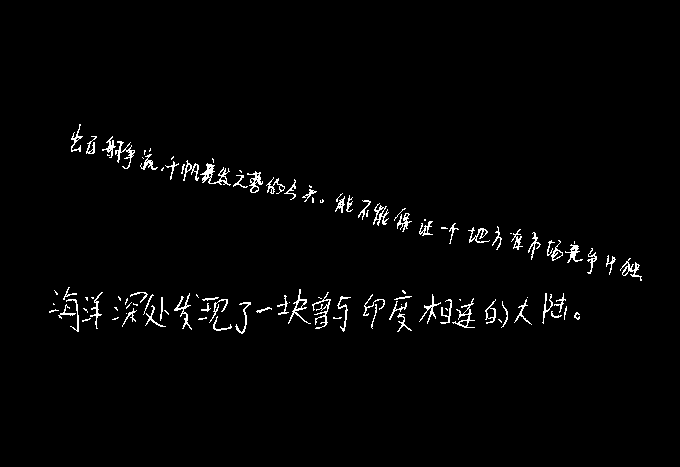 出百舸争流,千帆竞发之势的今天。能不能保证一个地方在市场竞争中独
海洋深处发现了一块曾与印度相连的大陆。